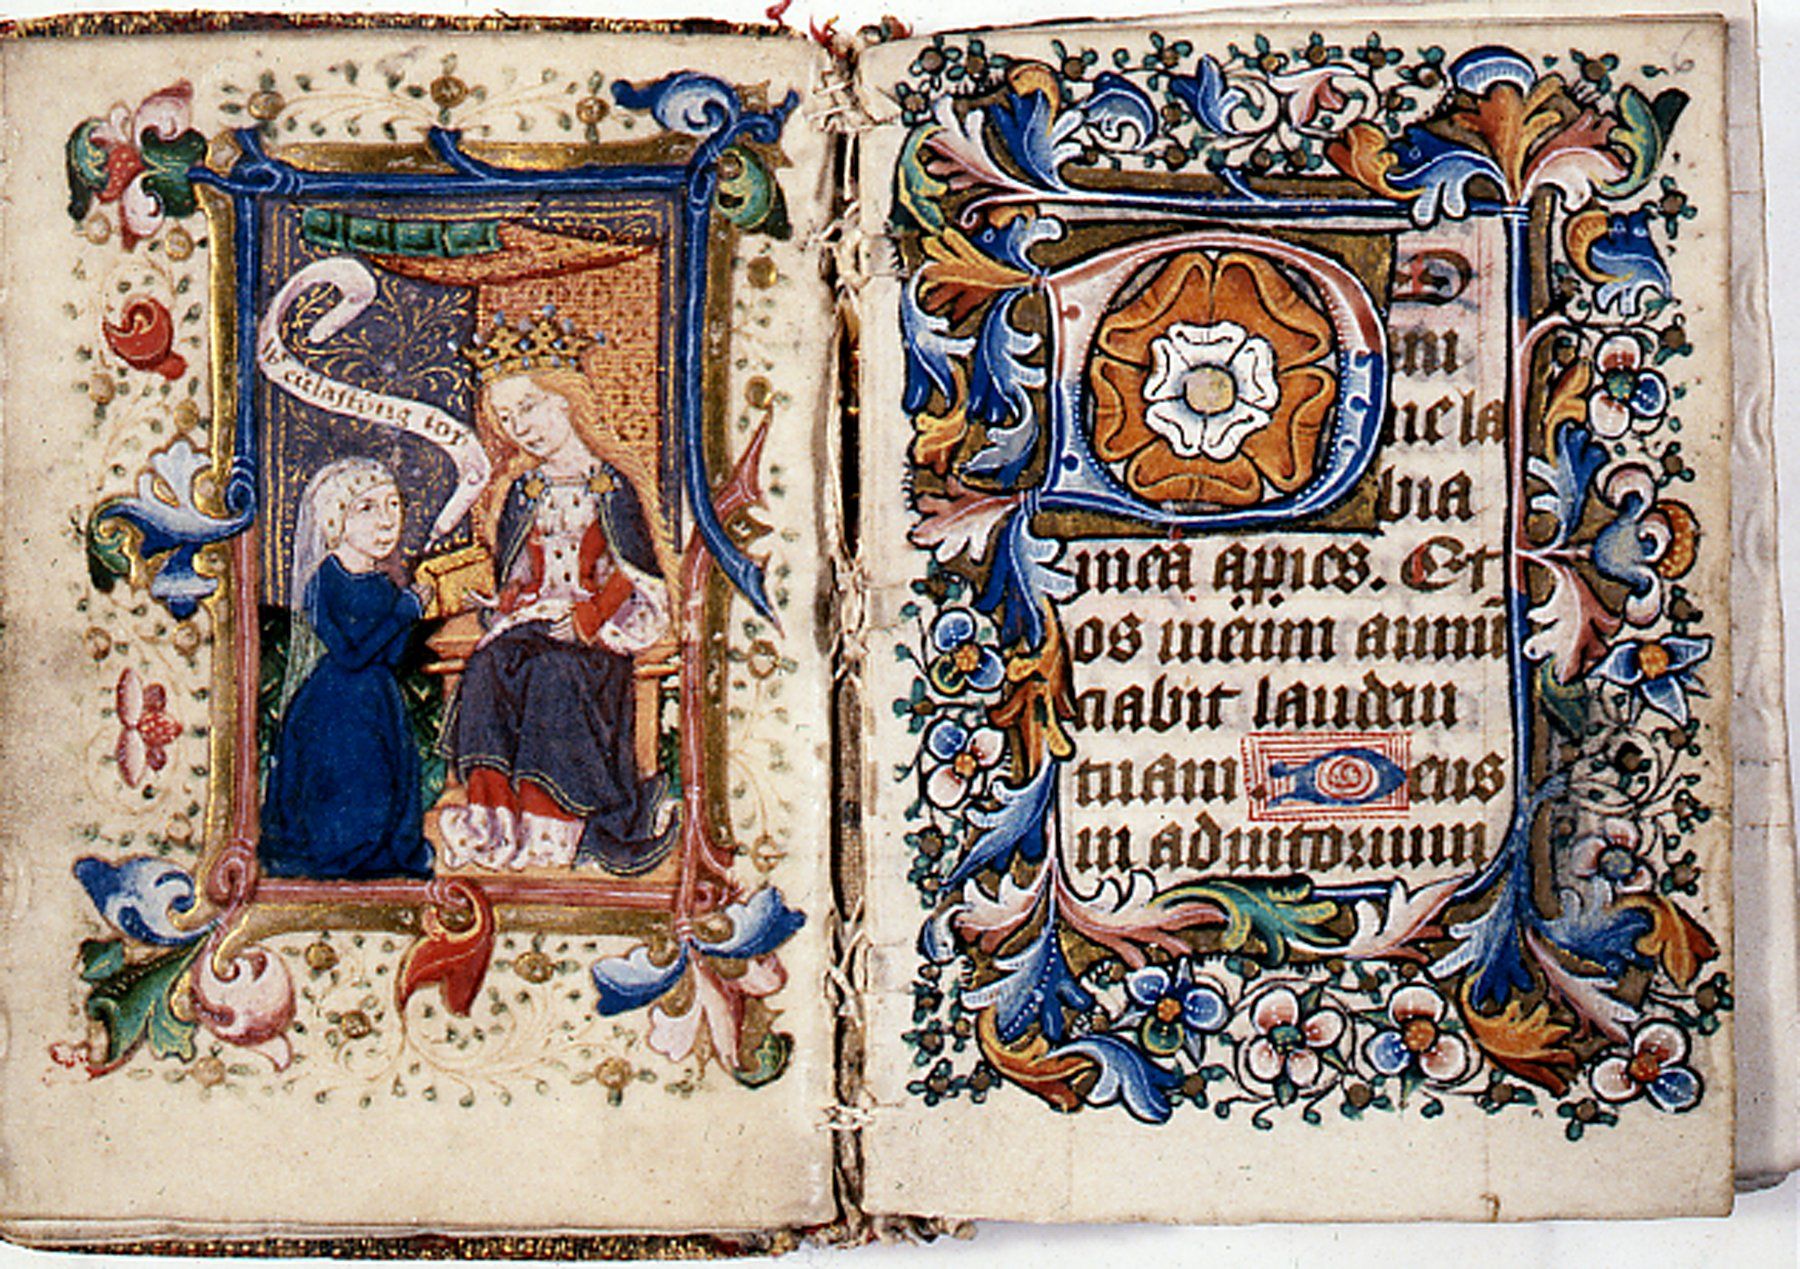 eu'lasting ioy
6
DO
mi
ne la
bia
mea apies. Et
os meum annū
ciabit laudem
tuam Deus
in adiutorium